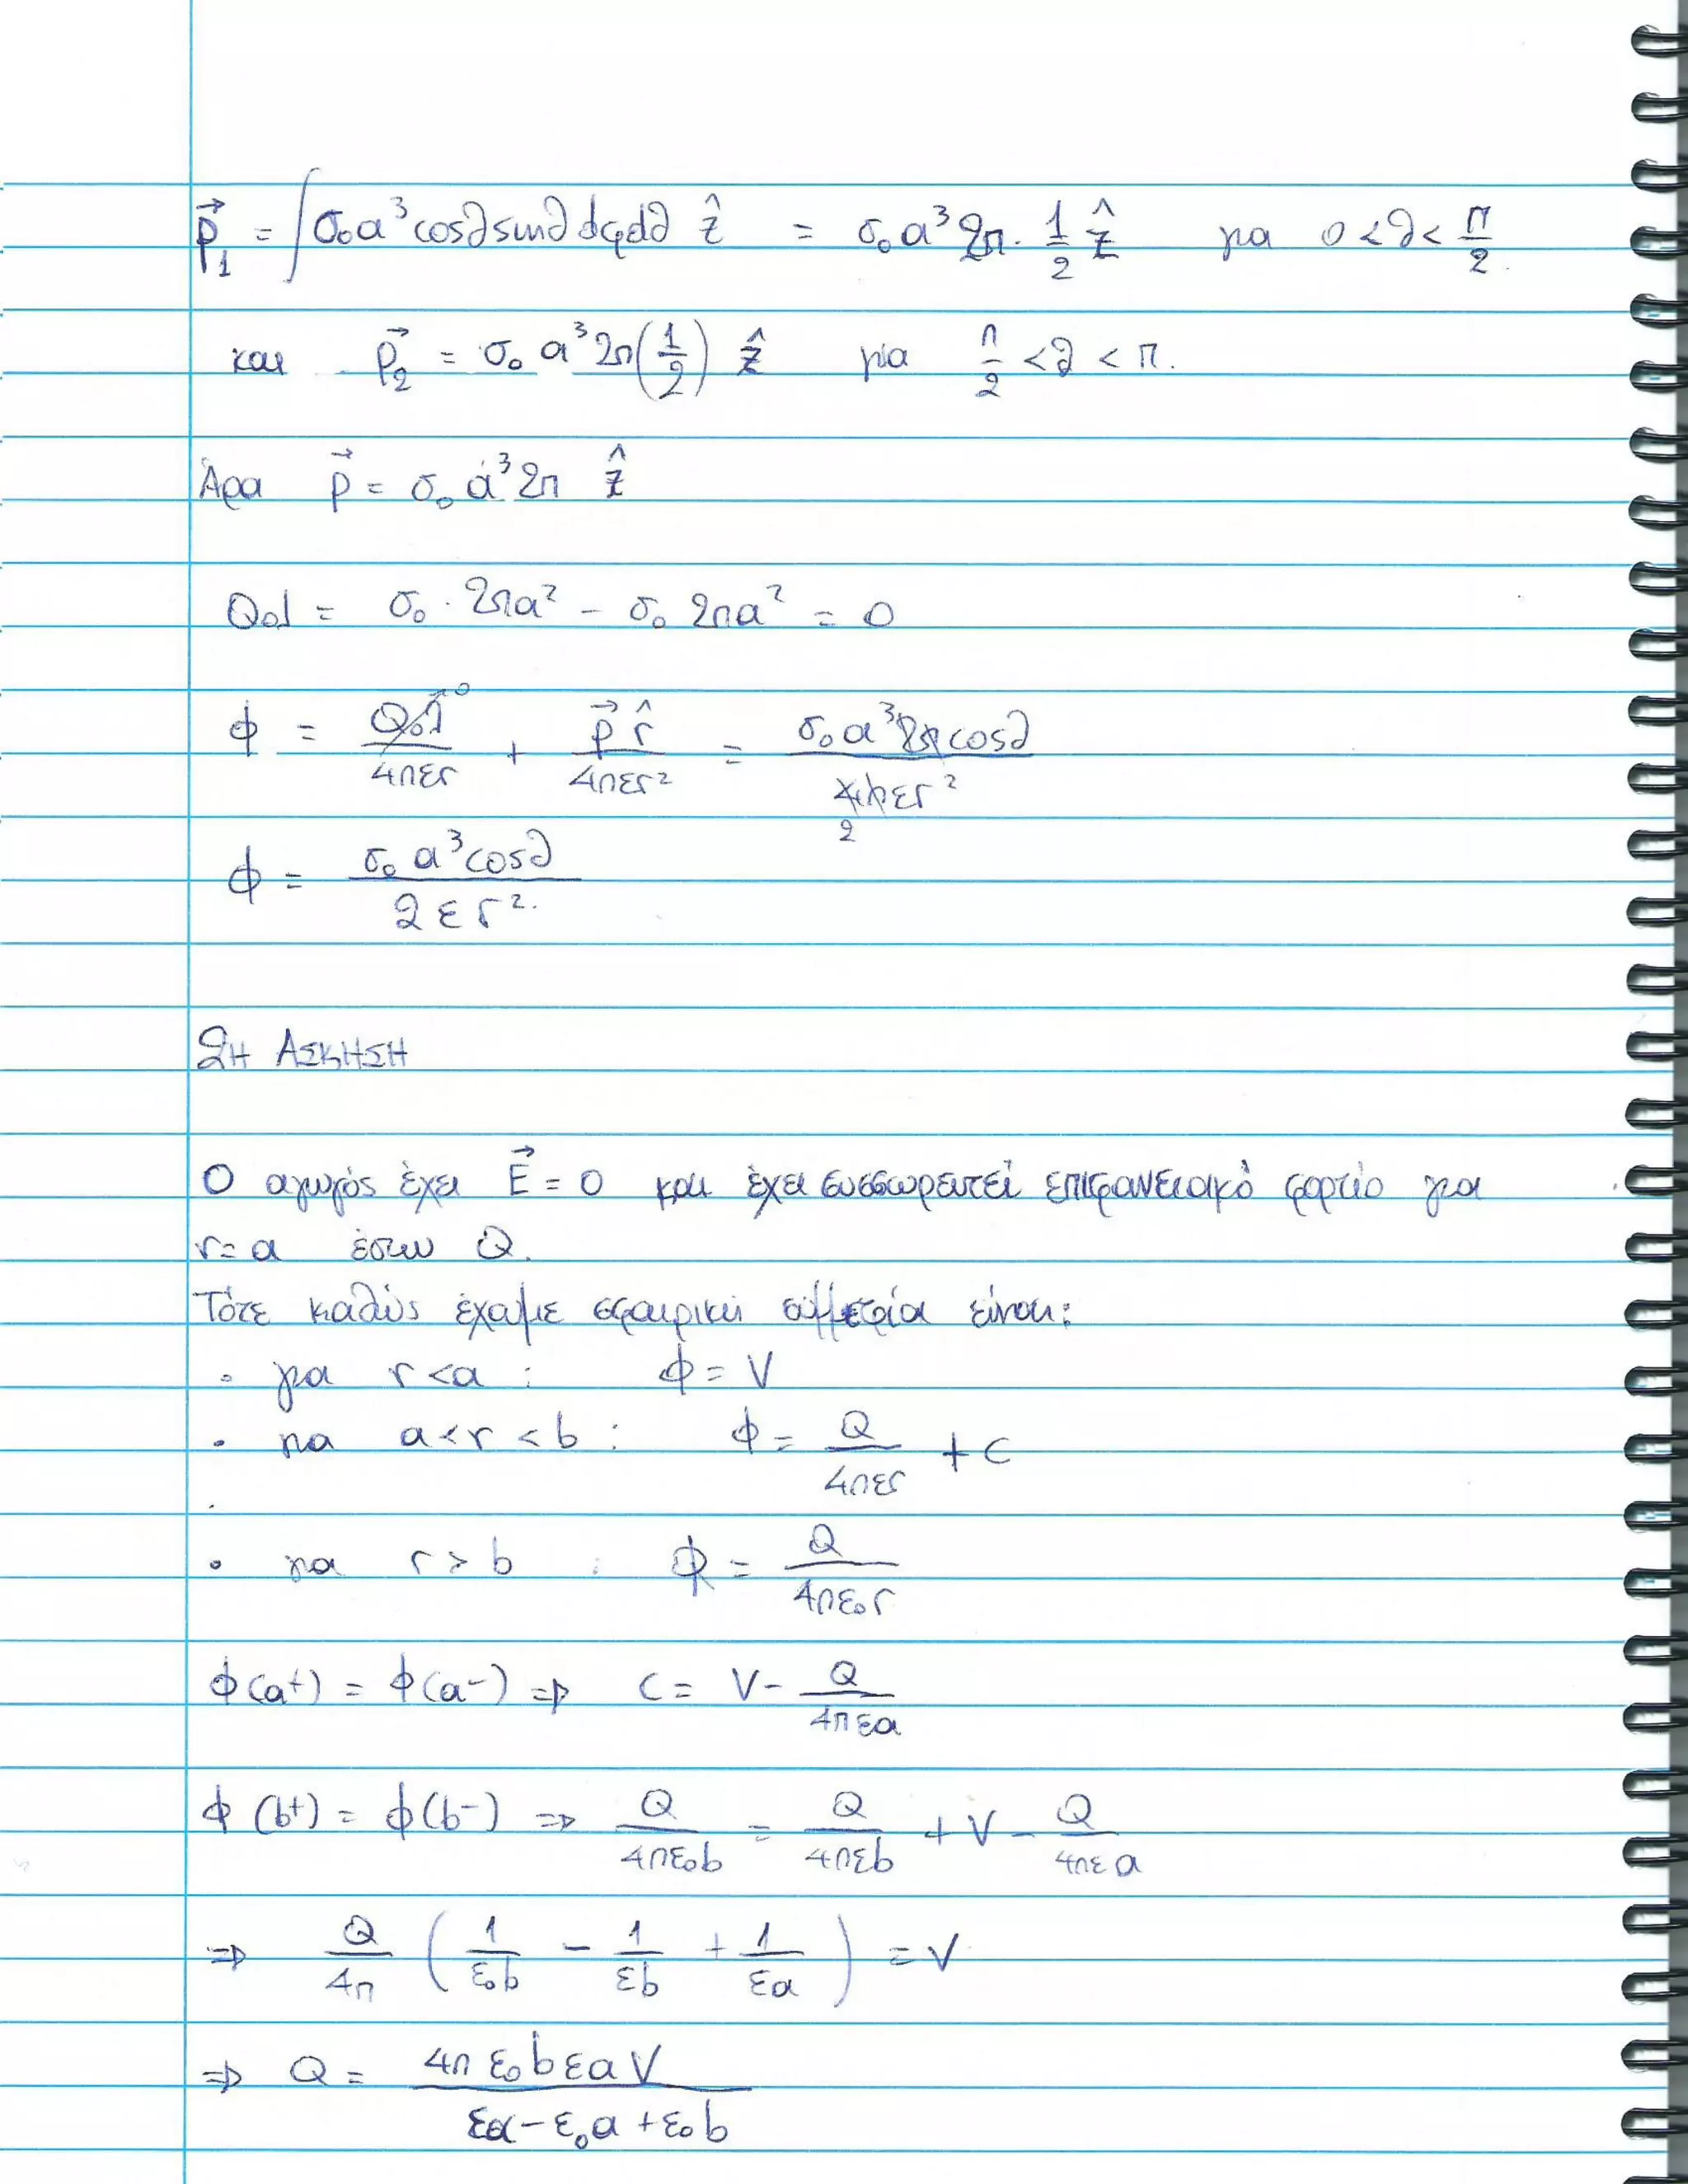 p⃗₁ = ∫σ₀a³cosθsinθdφdθ ẑ = σ₀a³2π · 1/2 ẑ για 0<θ<π/2
και p⃗₂ = σ₀a³2π(1/2) ẑ για π/2<θ<π.
Άρα p⃗ = σ₀a³2π ẑ
Qολ = σ₀·2πa² − σ₀2πa² = 0
ϕ = Qολ/4πεr →0 + p⃗ r̂/4πεr² = σ₀a³2πcosθ/4πεr² 2
ϕ = σ₀a³cosθ/2εr².
2Η ΑΣΚΗΣΗ
Ο αγωγός έχει E⃗ = 0 και έχει συσσωρευτεί επιφανειακό φορτίο για
r=a έστω Q.
Τότε καθώς έχουμε σφαιρική συμμετρία είναι:
• για r<a : ϕ = V
• για a<r<b : ϕ = Q/4πεr + C
• για r>b : ϕ = Q/4πε₀r
ϕ(a⁺) = ϕ(a⁻) ⇒ C = V − Q/4πεa
ϕ(b⁺) = ϕ(b⁻) ⇒ Q/4πε₀b = Q/4πεb + V − Q/4πεa
⇒ Q/4π (1/ε₀b − 1/εb + 1/εa) = V
⇒ Q = 4πε₀bεaV/εa−ε₀a+ε₀b